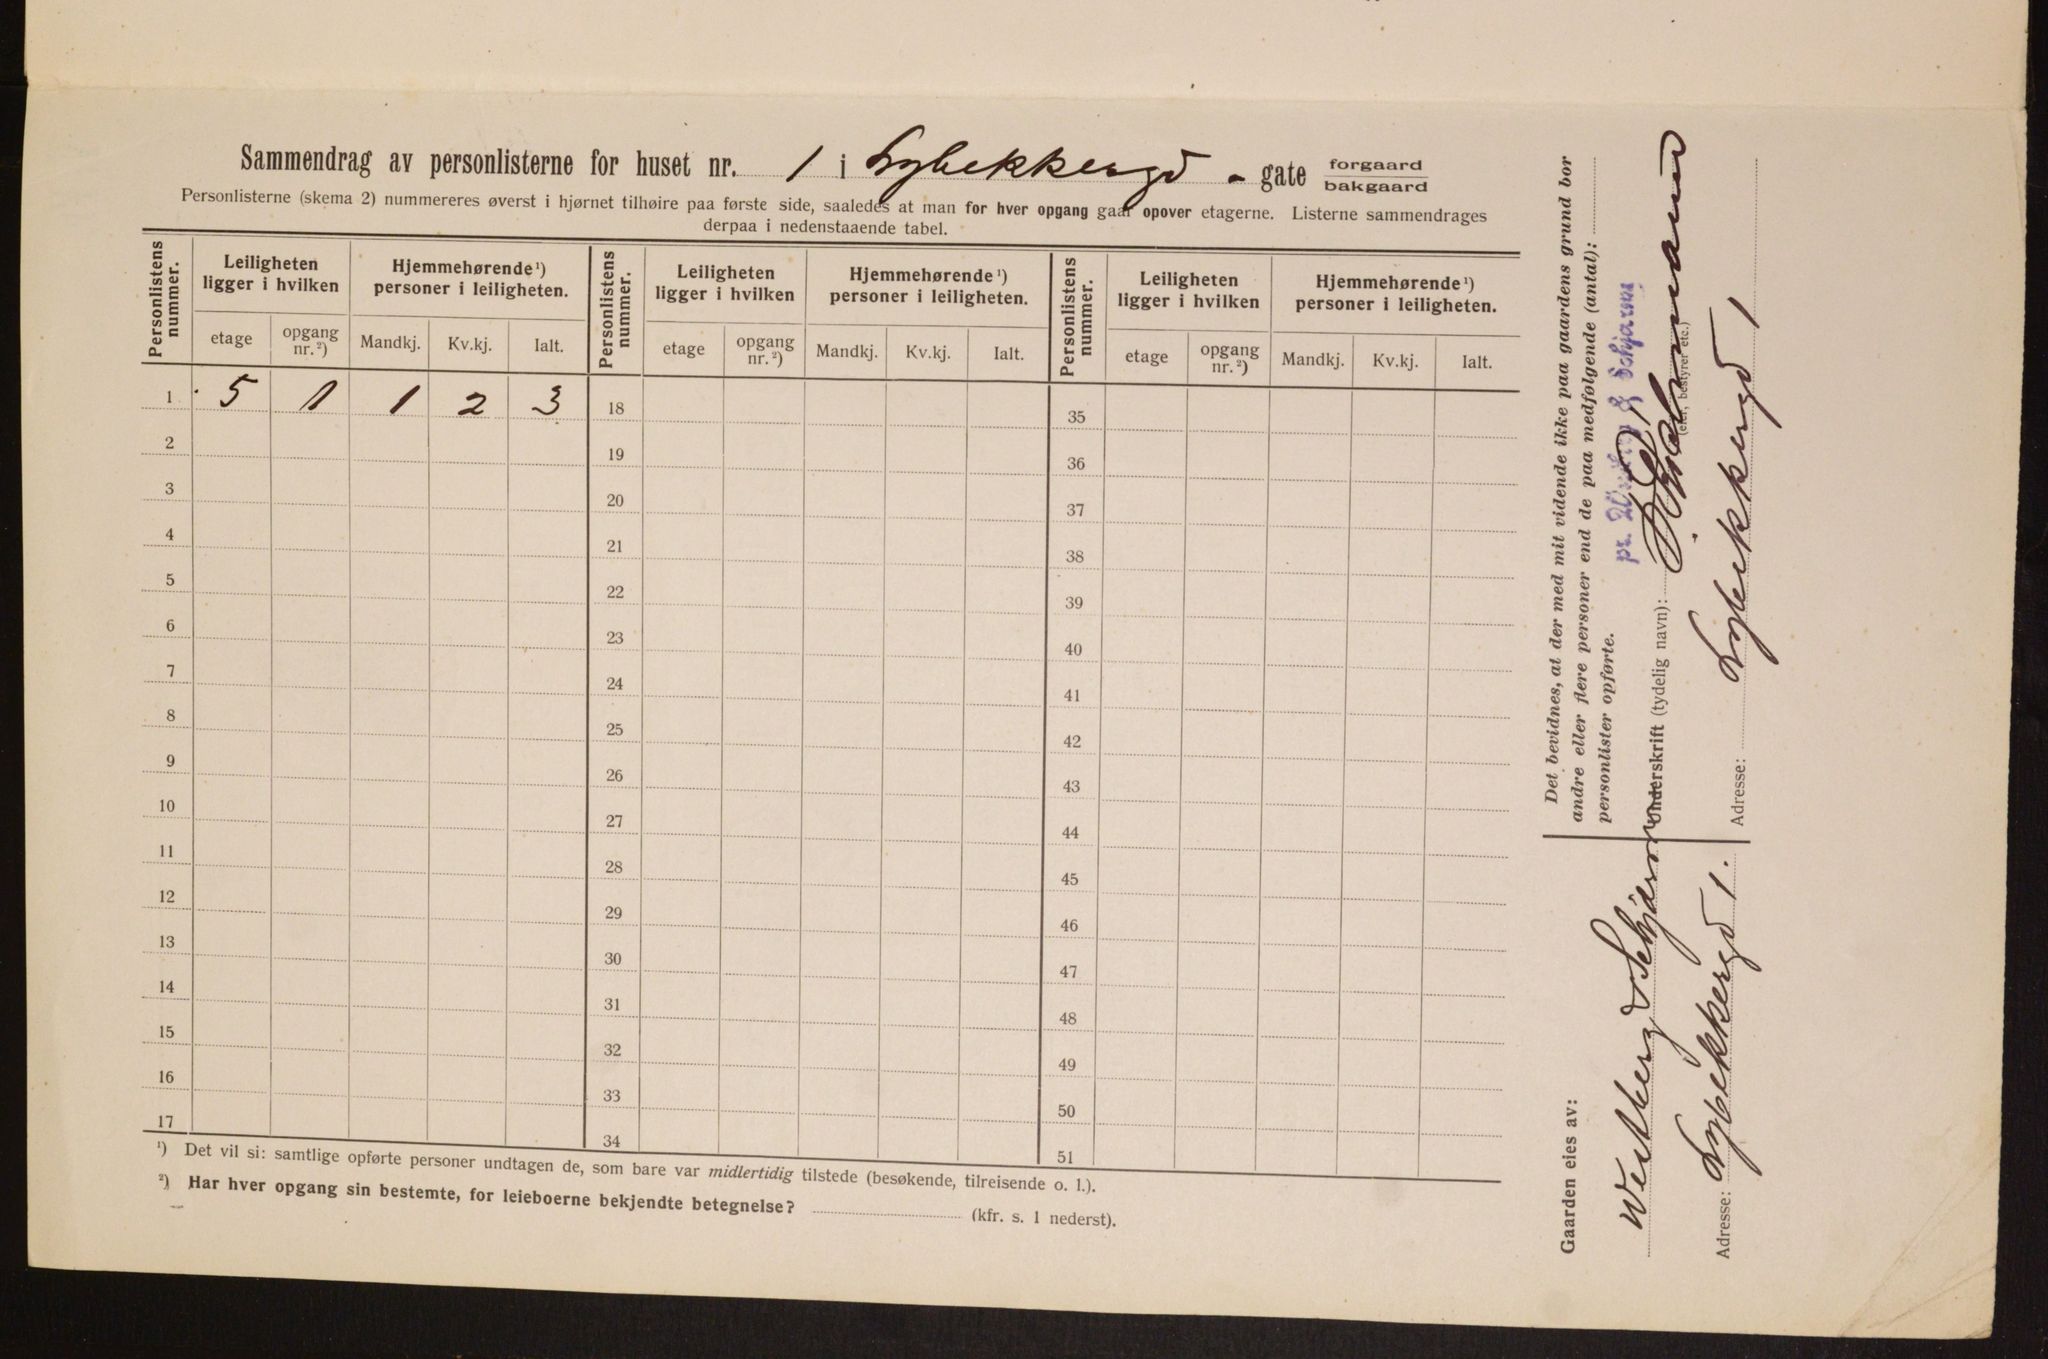 Sammendrag av personlisterne for huset nr. 1 i Lybekkergd - gate forgaard bakgaard
Personlisterne (skema 2) nummereres øverst i hjørnet tilhøire paa første side, saaledes at man for hver opgang gaar opover etagerne. Listerne sammendrages
derpaa i nedenstaaende tabel.
Personlistens nummer. Leiligheten ligger i hvilken Hjemmehørende ¹) personer i leiligheten. Personlistens nummer. Leiligheten ligger i hvilken Hjemmehørende ¹) personer i leiligheten. Personlistens nummer. Leiligheten ligger i hvilken Hjemmehørende ¹) personer i leiligheten.
etage opgang nr. ²) Mandkj. Kv.kj. Ialt. etage opgang nr. ²) Mandkj. Kv.kj. Ialt. etage opgang nr. ²) Mandkj. Kv.kj. Ialt.
1 5 1 1 2 3 18 35
2 19 36
3 20 37
4 21 38
5 22 39
6 23 40
7 24 41
8 25 42
9 26 43
10 27 44
11 28 45
12 29 46
13 30 47
14 31 48
15 32 49
16 33 50
17 34 51
¹) Det vil si: samtlige opførte personer undtagen de, som bare var midlertidig tilstede (besøkende, tilreisende o. l.).
²) Har hver opgang sin bestemte, for leieboerne bekjendte betegnelse? (kfr. s. 1 nederst).
Det bevidnes, at der med mit vidende ikke paa gaardens grund bor
andre eller flere personer end de paa medfølgende (antal):
personlister opførte.
pr. Westberg & Schjarm
Underskrift (tydelig navn):
(eier, bestyrer etc.)
Adresse: Lybekkergd 1
Gaarden eies av:
Westberg & Schjarm
Adresse: Lybekkergd 1.